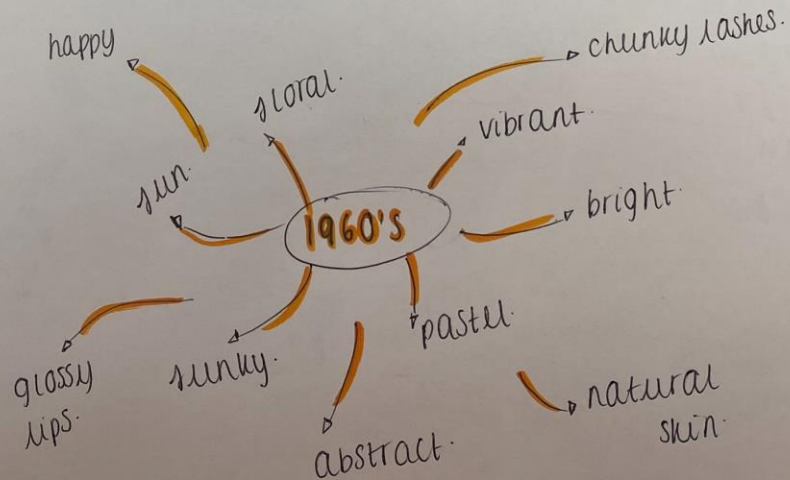 happy
floral.
chunky lashes.
vibrant.
fun.
1960's
bright.
glossy
lips.
funky.
pastel.
abstract.
natural
skin.